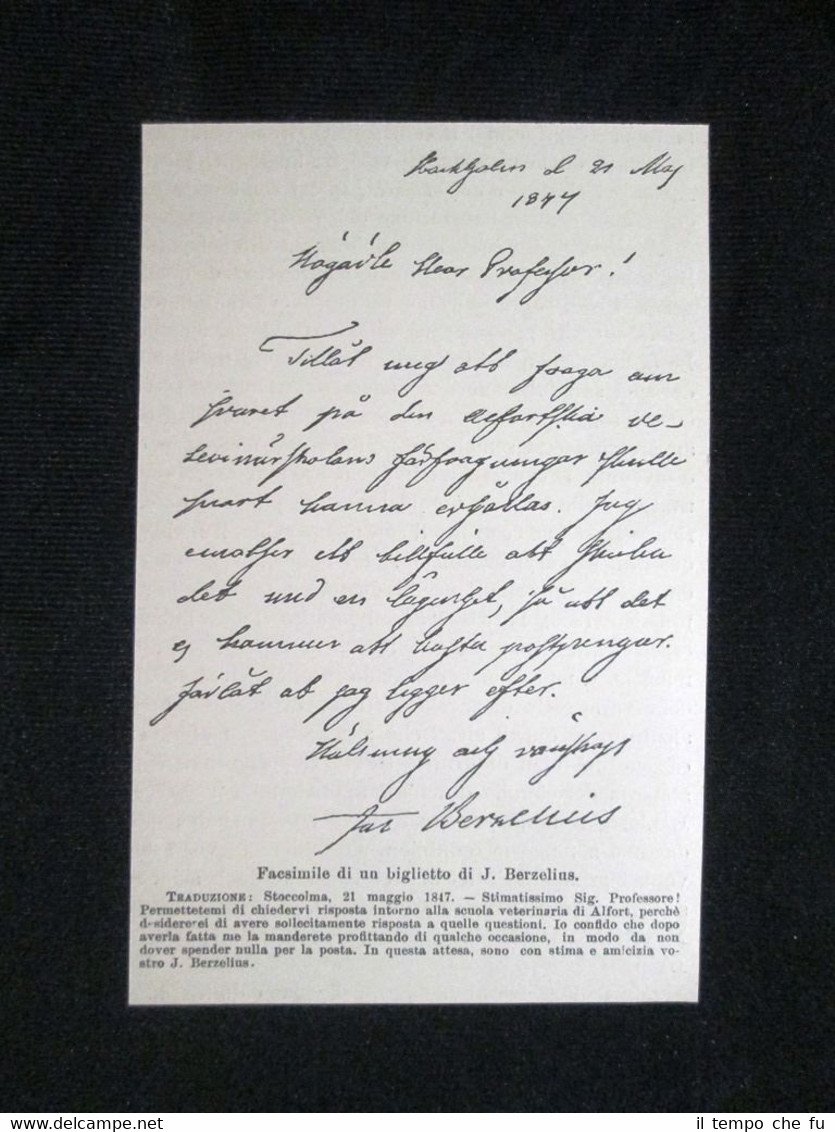 Stockholm d 21 Maj
1847
Högädle Herr Professor!
Tillåt mig att fraga om
svaret på den Alfortska ve-
terinärskolans förfragningar skulle
snart kunna erhållas. Jag
ett tillfälle att skicka
det med en lägenhet, så att det
ej kommer att kosta postpengar.
Förlåt at jag ligger efter.
Hälsning och vänskap
Jac Berzelius
Facsimile di un biglietto di J. Berzelius.
TRADUZIONE: Stoccolma, 21 maggio 1847. — Stimatissimo Sig. Professore!
Permettetemi di chiedervi risposta intorno alla scuola veterinaria di Alfort, perchè
desidererei di avere sollecitamente risposta a quelle questioni. Io confido che dopo
averla fatta me la manderete profittando di qualche occasione, in modo da non
dover spender nulla per la posta. In questa attesa, sono con stima e amicizia vo-
stro J. Berzelius.
il tempo che fu
www.delcampe.net